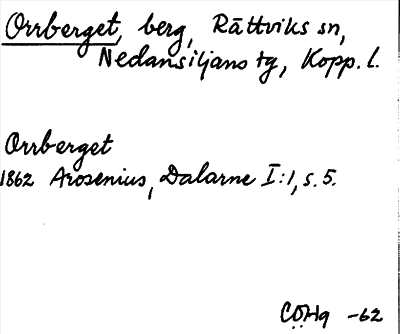 Orrberget, berg, Rättviks sn,
Nedansiljans tg, Kopp. l.
Orrberget
1862 Arosenius, Dalarne I:1, s. 5.
CÖHq -62